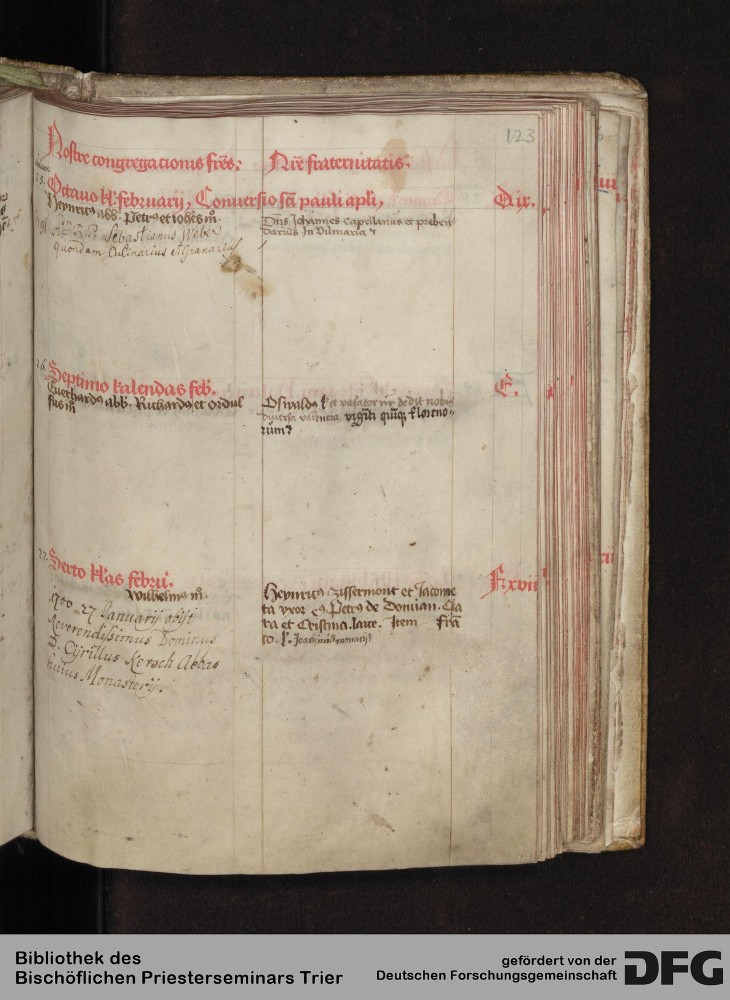 123
Nostre congregationis frēs: Nrē fraternitatis.
25. Octauo kl' februarij, Conuersio scī pauli apli, D ix.
Heynricus abb. Petrus et iohēs m̄.
Sebastianus Weber
quondam Culinarius et Granarius
Dn̄s Johannes capellanus et preben-
darius In Vilmaria
26. Septimo kalendas feb. E.
Euerhardus abb. Richardus et ordul
fus m̄
Oswaldus l' et vasator dedit nobis
diuersa valencia viginti quinq; floreno-
rum
27. Sexto kl'as febru. F xvii
Wilhelmus m̄.
1700 27 Januarij obijt
Reverendissimus Dominus
D. Cyrillus Kersch Abbas
huius Monasterij.
Heynricus zissermont et Jacome
ta vxor es. Petrus de Domian. Cla
ra et Cristina. laice. Item Fra
to. l'. Joachimus monachus
Bibliothek des
Bischöflichen Priesterseminars Trier
gefördert von der
Deutschen Forschungsgemeinschaft
DFG